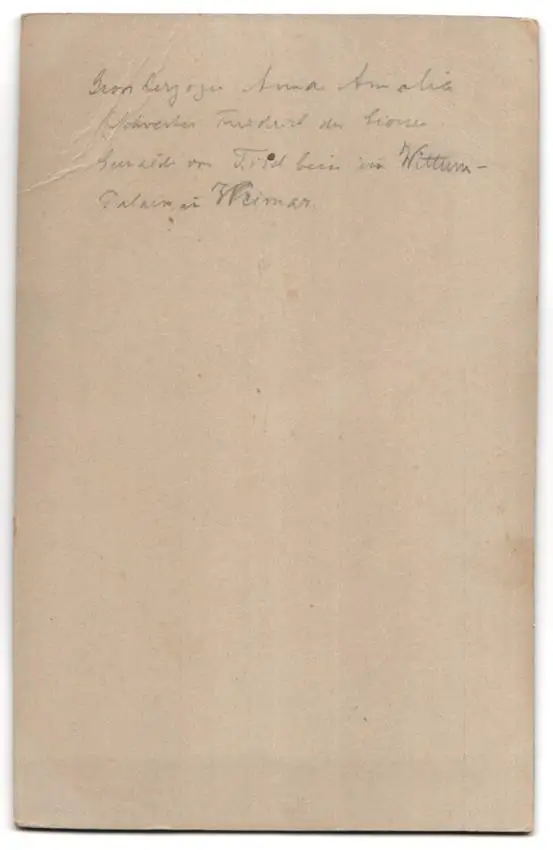 Grossherzogin Anna Amalie
Schwester Friedrich der Grosse
Gemälde von Tischbein im Wittum-
Palais in Weimar.